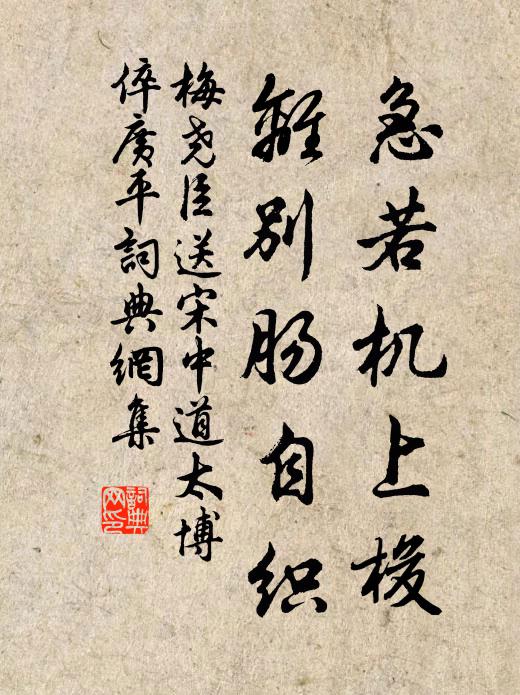 急若机上梭
離別肠自织
梅尧臣送宋中道太博
倅廣平詞典網集
詞典網印